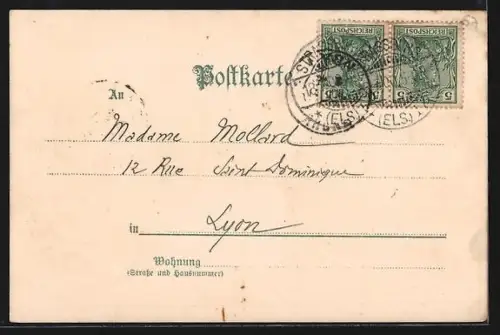 Postkarte
An
Madame Mollard
12 Rue Saint Dominique
in Lyon
Wohnung
(Straße und Hausnummer)
REICHSPOST
REICHSPOST
5
5
(ELS)
(ELS)